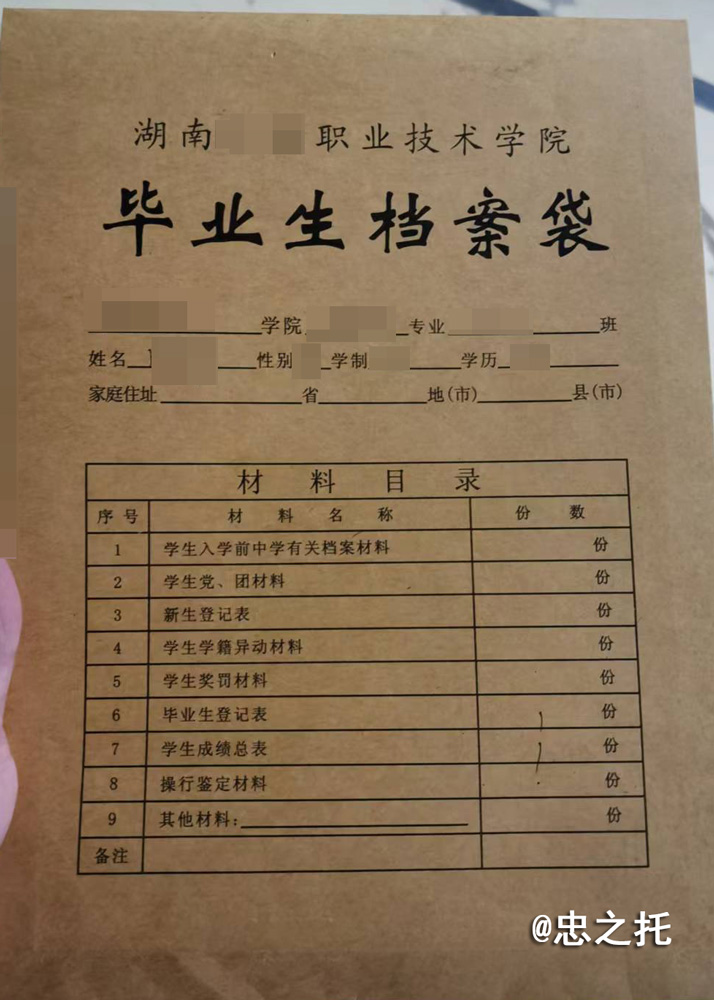 湖南 职业技术学院
毕业生档案袋
学院 专业 班
姓名 性别 学制 学历
家庭住址 省 地(市) 县(市)
材料目录
序号 材料名称 份数
1 学生入学前中学有关档案材料 份
2 学生党、团材料 份
3 新生登记表 份
4 学生学籍异动材料 份
5 学生奖罚材料 份
6 毕业生登记表 1 份
7 学生成绩总表 1 份
8 操行鉴定材料 份
9 其他材料: 份
备注
@忠之托